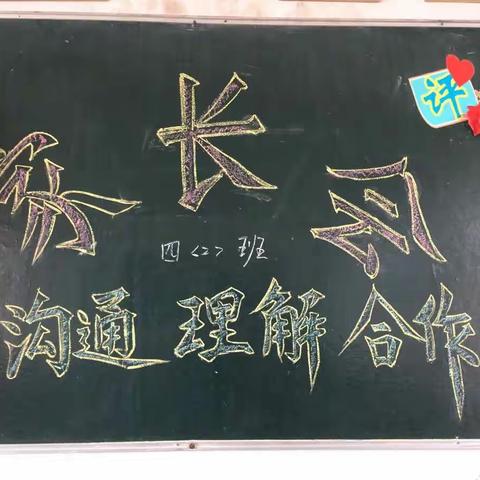 评
家长会
四〈2〉班
沟通 理解 合作